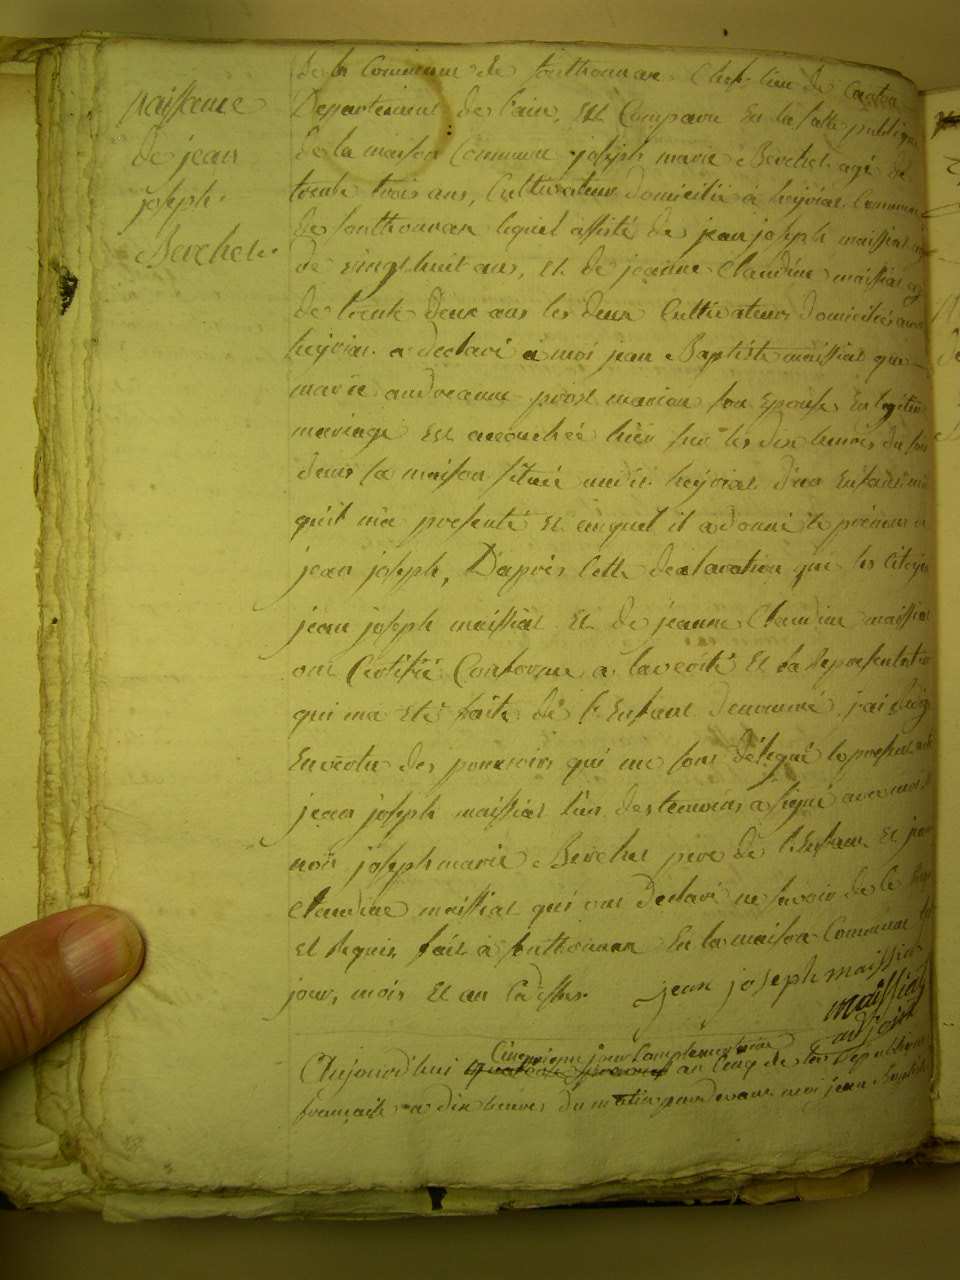 naissance
de jean
joseph
Berchet.
de la Commune de Chef lieu de Canton
Departement de l'ain, Est Comparu En la salle publique
de la maison Commune joseph marie Berchet agé de
trente trois ans, Cultivateur domicilié à heyriat Commune
de lequel assisté de jean joseph maissiat agé
de vingt huit ans, et de jeanne Claudine maissiat agé
de trente deux ans les deux Cultivateurs domiciliés
heyriat a declaré a moi jean Baptiste maissiat que
marie andreanne son Epouse En legitime
mariage Est accouchée hier sur les dix heures du soir
dans sa maison située audit heyriat d'un Enfant
qu'il m'a presenté et auquel il a donné le prénom de
jean joseph, D'après Cette declaration que les Citoyens
jean joseph maissiat et de jeanne Claudine maissiat
ont Certifié Conforme a la verité Et la Representation
qui m'a Eté faite de l'Enfant denommé j'ai redigé
En vertu des pouvoirs qui me sont délégué le present acte
jean joseph maissiat l'un des temoins a signé avec moi
non joseph marie Berchet pere de l'Enfant Et jeanne
Claudine maissiat qui ont declaré ne savoir de Ce
Et Requis fait à En la maison Commune
jour, mois Et an Cidessus. jean joseph maissiat
maissiat
adjoint
Cinquieme jour Complementaire
Aujourd'hui an Cinq de la Republique
française a dix heures du matin pardevant moi jean Baptiste